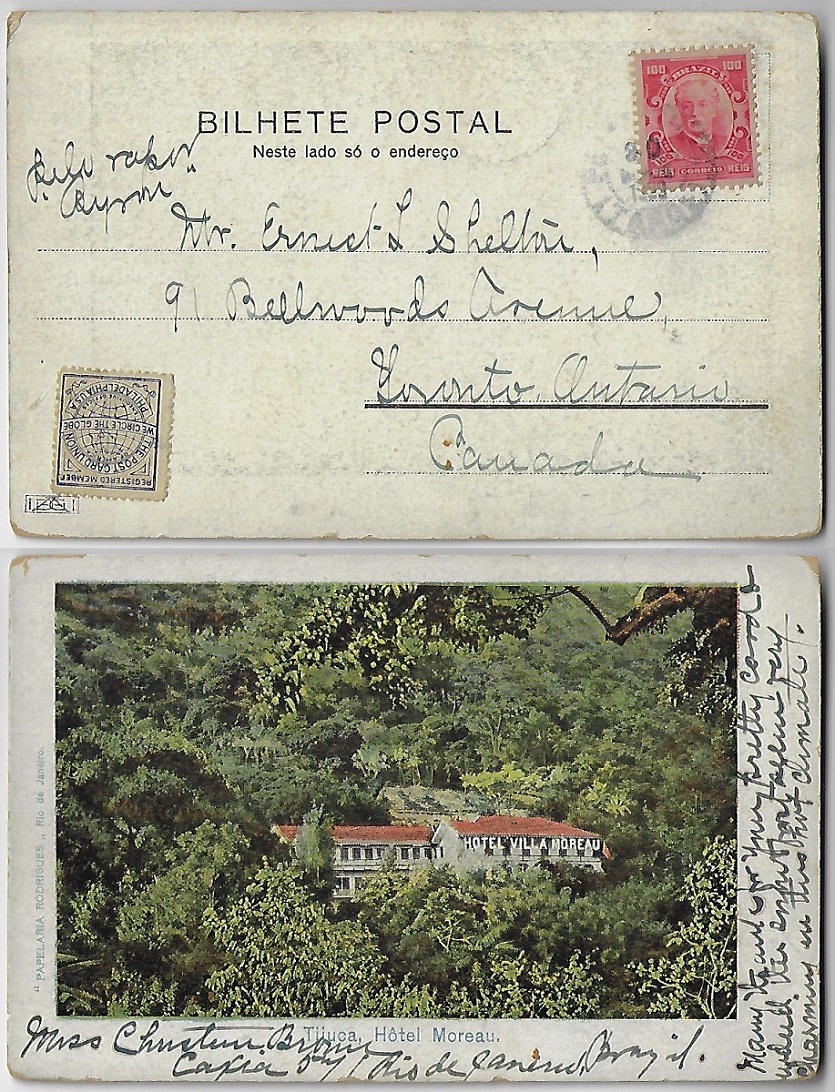 BILHETE POSTAL
Neste lado só o endereço
100 BRAZIL 100
100 100
REIS (CORREIO) REIS
Pelo vapor
"Byron"
Mr. Ernest L Shelton,
91 Bellwoods Avenue,
Toronto, Ontario
Canada
REGISTERED MEMBER
THE POST CARD UNION
WE CIRCLE THE GLOBE
PHILADELPHIA U.S.A.
"PAPELARIA RODRIGUES" Rio de Janeiro.
HOTEL VILLA MOREAU
Tijuca, Hôtel Moreau.
Miss Brown
Caixa Rio de Janeiro, Brazil.
Many thanks for your pretty cards
indeed the seem very
charming in this hot climate!